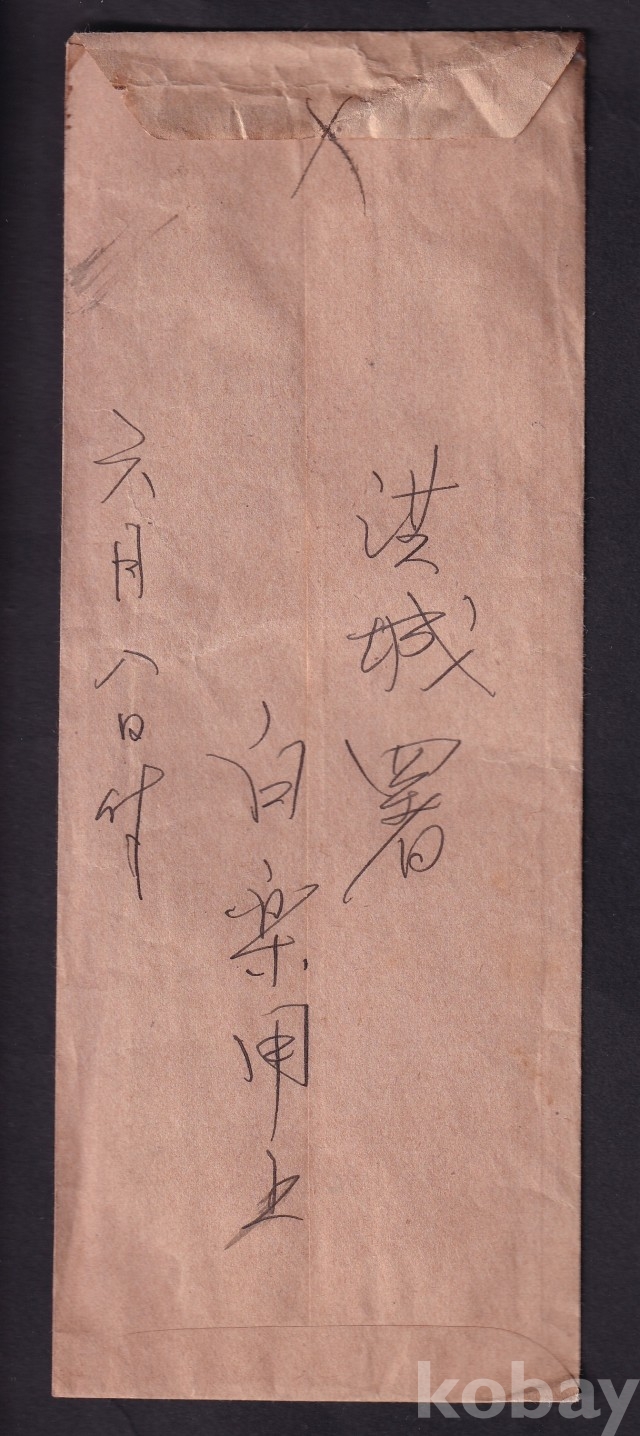 洪城署
白楽用上
六月八日付
kobay